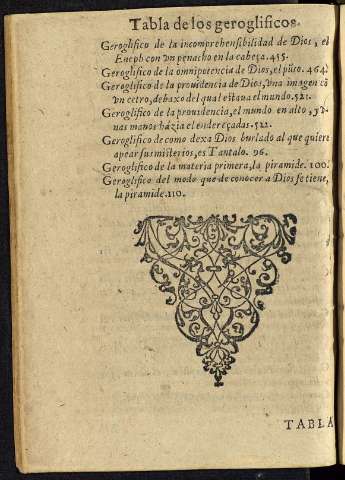 Tabla de los geroglificos.
Geroglifico de la incomprehensibilidad de Dios, el
Eneph con vn penacho en la cabeça. 455.
Geroglifico de la omnipotencia de Dios, el pũto. 464.
Geroglifico de la prouidencia de Dios, vna imagen cõ
vn cetro, debaxo del qual estaua el mundo. 521.
Geroglifico de la prouidencia, el mundo en alto, y v-
nas manos házia el endereçadas. 522.
Geroglifico de como dexa Dios burlado al que quiere
apear sus misterios, es Tantalo. 96.
Geroglifico de la materia primera, la piramide. 100.
Geroglifico del modo que de conocer a Dios se tiene,
la piramide. 110.
TABLA